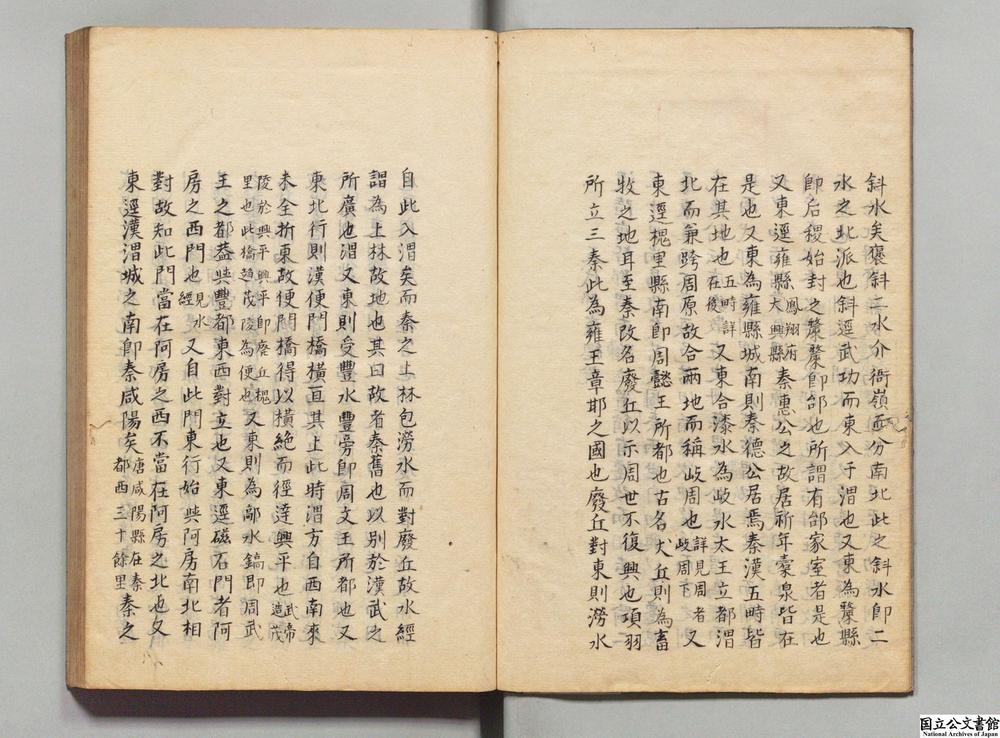 斜水矣褒斜二水介衙嶺而分南北此之斜水即二
水之北派也斜逕武功而東入于渭也又東為斄縣
即后稷始封之斄斄即邰也所謂有邰家室者是也
又東逕雍縣鳳翔府大興縣秦惠公之故居祈年橐泉皆在
是也又東為雍縣城南則秦德公居焉秦漢五畤皆
在其地也五畤詳在後又東合漆水為岐水太王立都渭
北而兼跨周原故合兩地而稱岐周也詳見周者岐周下又
東逕槐里縣南即周懿王所都也古名犬丘則為畜
牧之地耳至秦改名廢丘以示周世不復興也項羽
所立三秦此為雍王章邯之國也廢丘對東則澇水
自此入渭矣而秦之上林包澇水而對廢丘故水經
謂為上林故地也其曰故者秦舊也以別於漢武之
所廣也渭又東則受豐水豐旁即周文王所都也又
東北行則漢便門橋橫亘其上此時渭方自西南來
未全折東故便門橋得以橫絶而徑達興平也武帝造茂
陵於興平興平即廢丘槐里也此橋趨茂陵為便也又東則為鄗水鎬即周武
王之都葢與豐都東西對立也又東逕磁石門者阿
房之西門也見水經又自此門東行始與阿房南北相
對故知此門當在阿房之西不當在阿房之北也又
東逕漢渭城之南即秦咸陽矣唐咸陽縣在秦都西三十餘里秦之
国立公文書館
National Archives of Japan